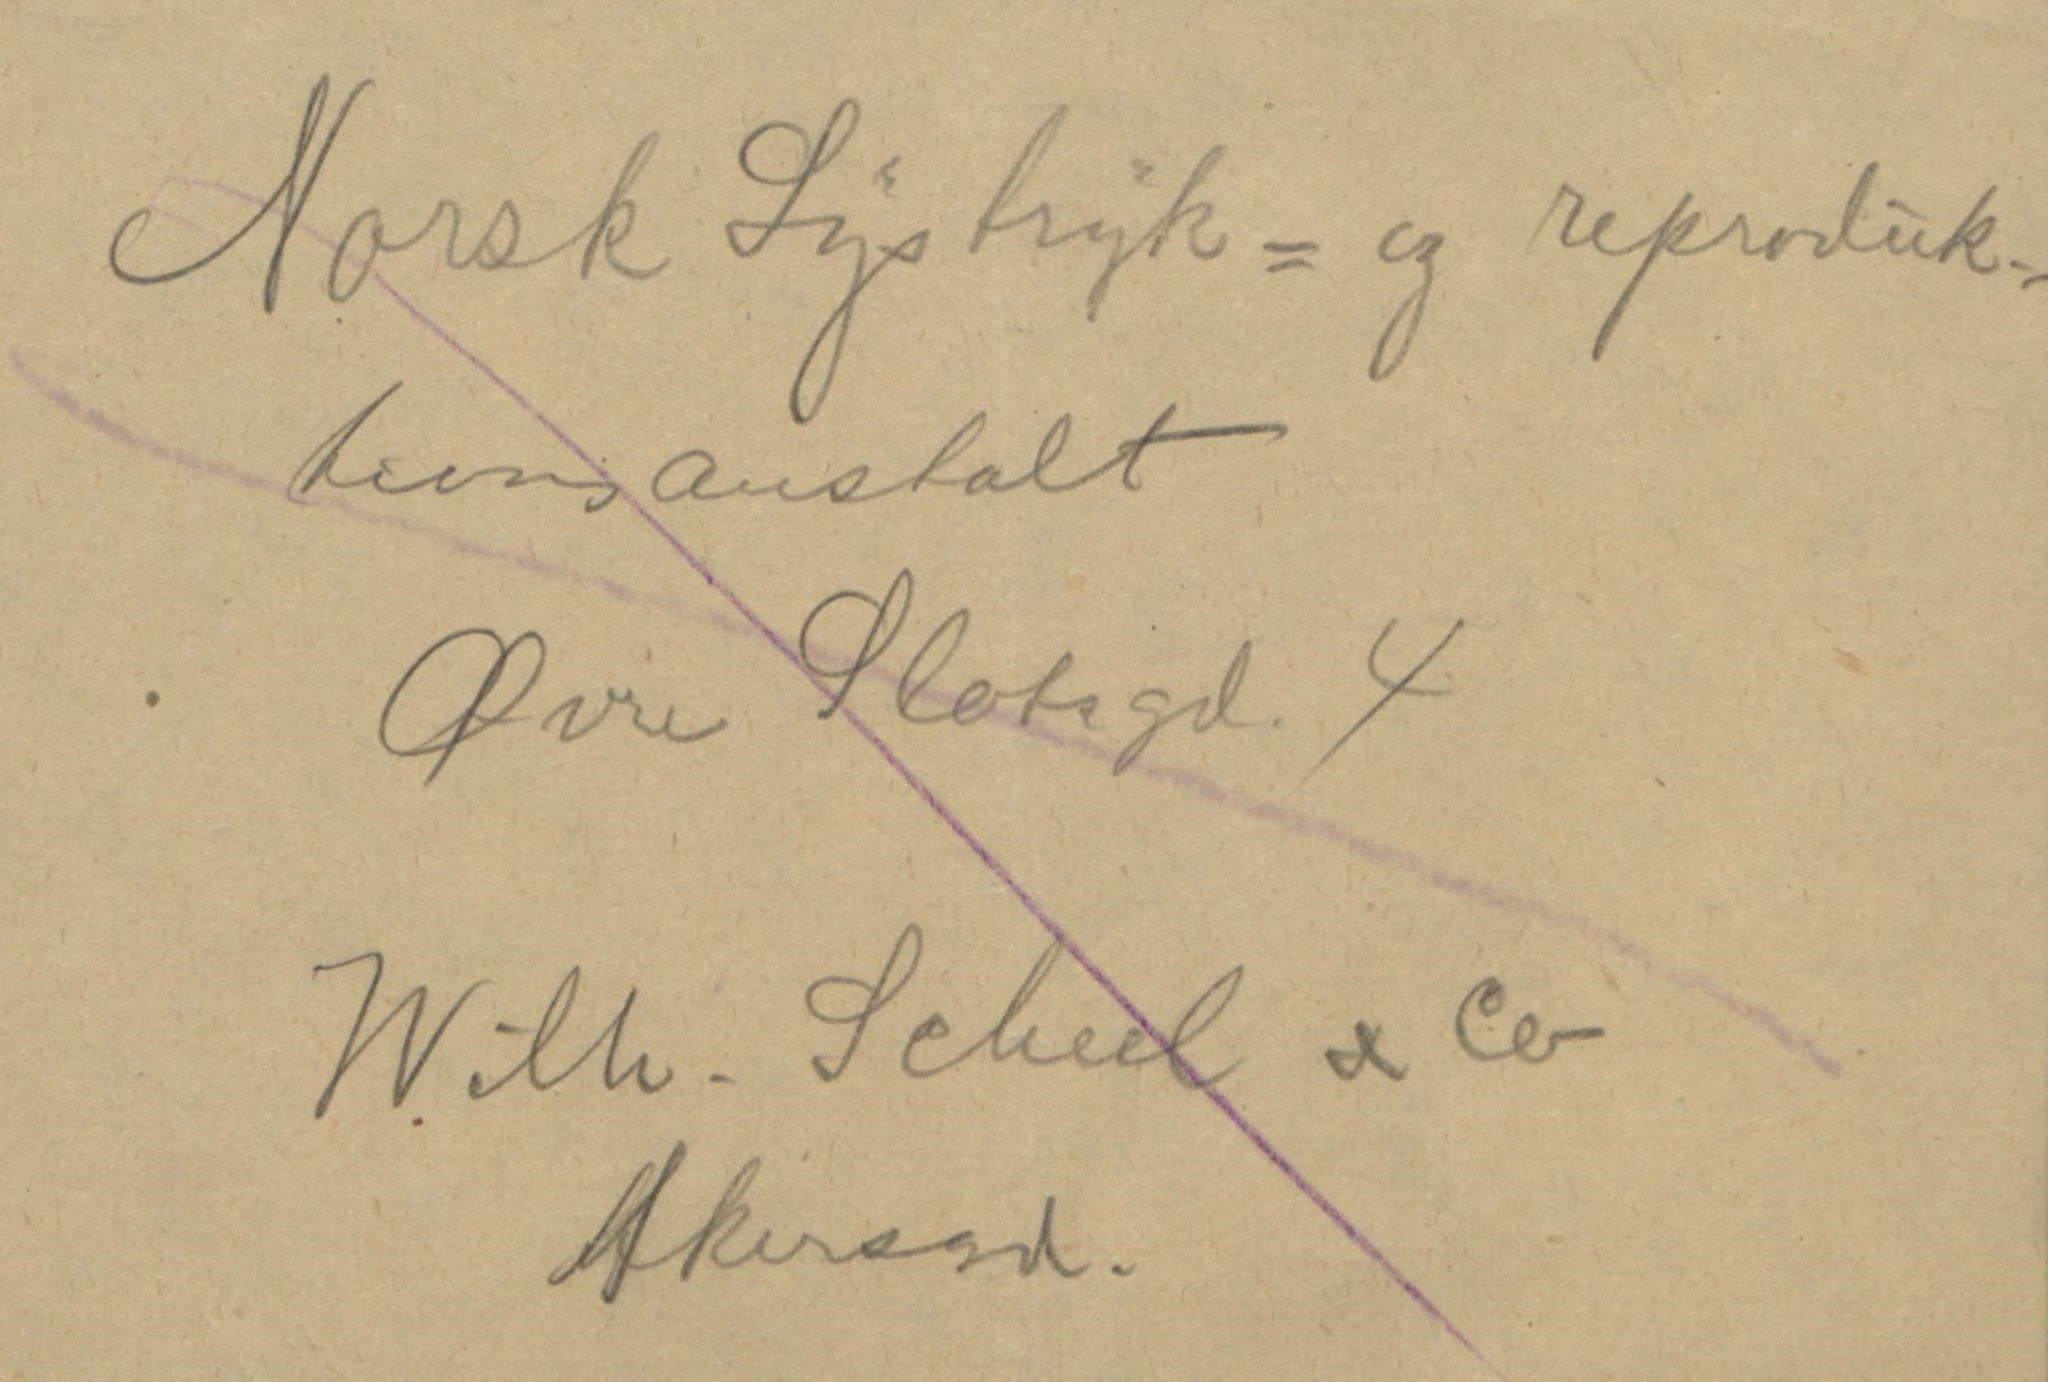 Norsk Lÿstrÿk= og reproduk-
tionsanstalt
Øvre Slotsgd. 4
Wilh. Scheel & Co
Akersgd.